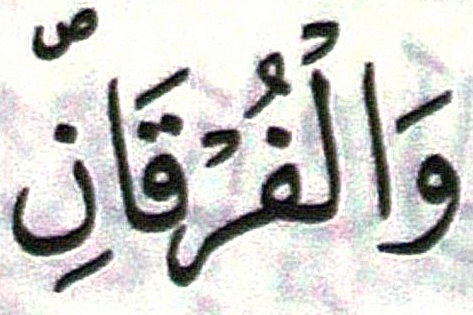 وَالْفُرْقَانِّ ۖص